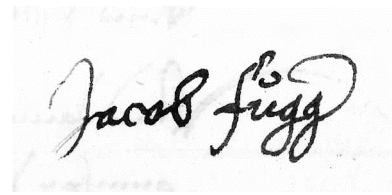 Jacob fůgg